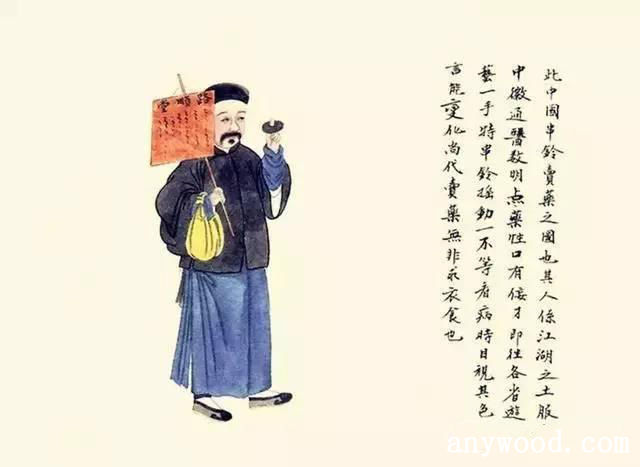 此中國串鈴賣藥之圖也其人係江湖之士服
中徽通醫数明点藥性口有佞才即往各省遊
藝一手持串鈴搖動一不等看病時目視其色
言能變化尚代賣藥無非求衣食也
路順堂
anywood.com